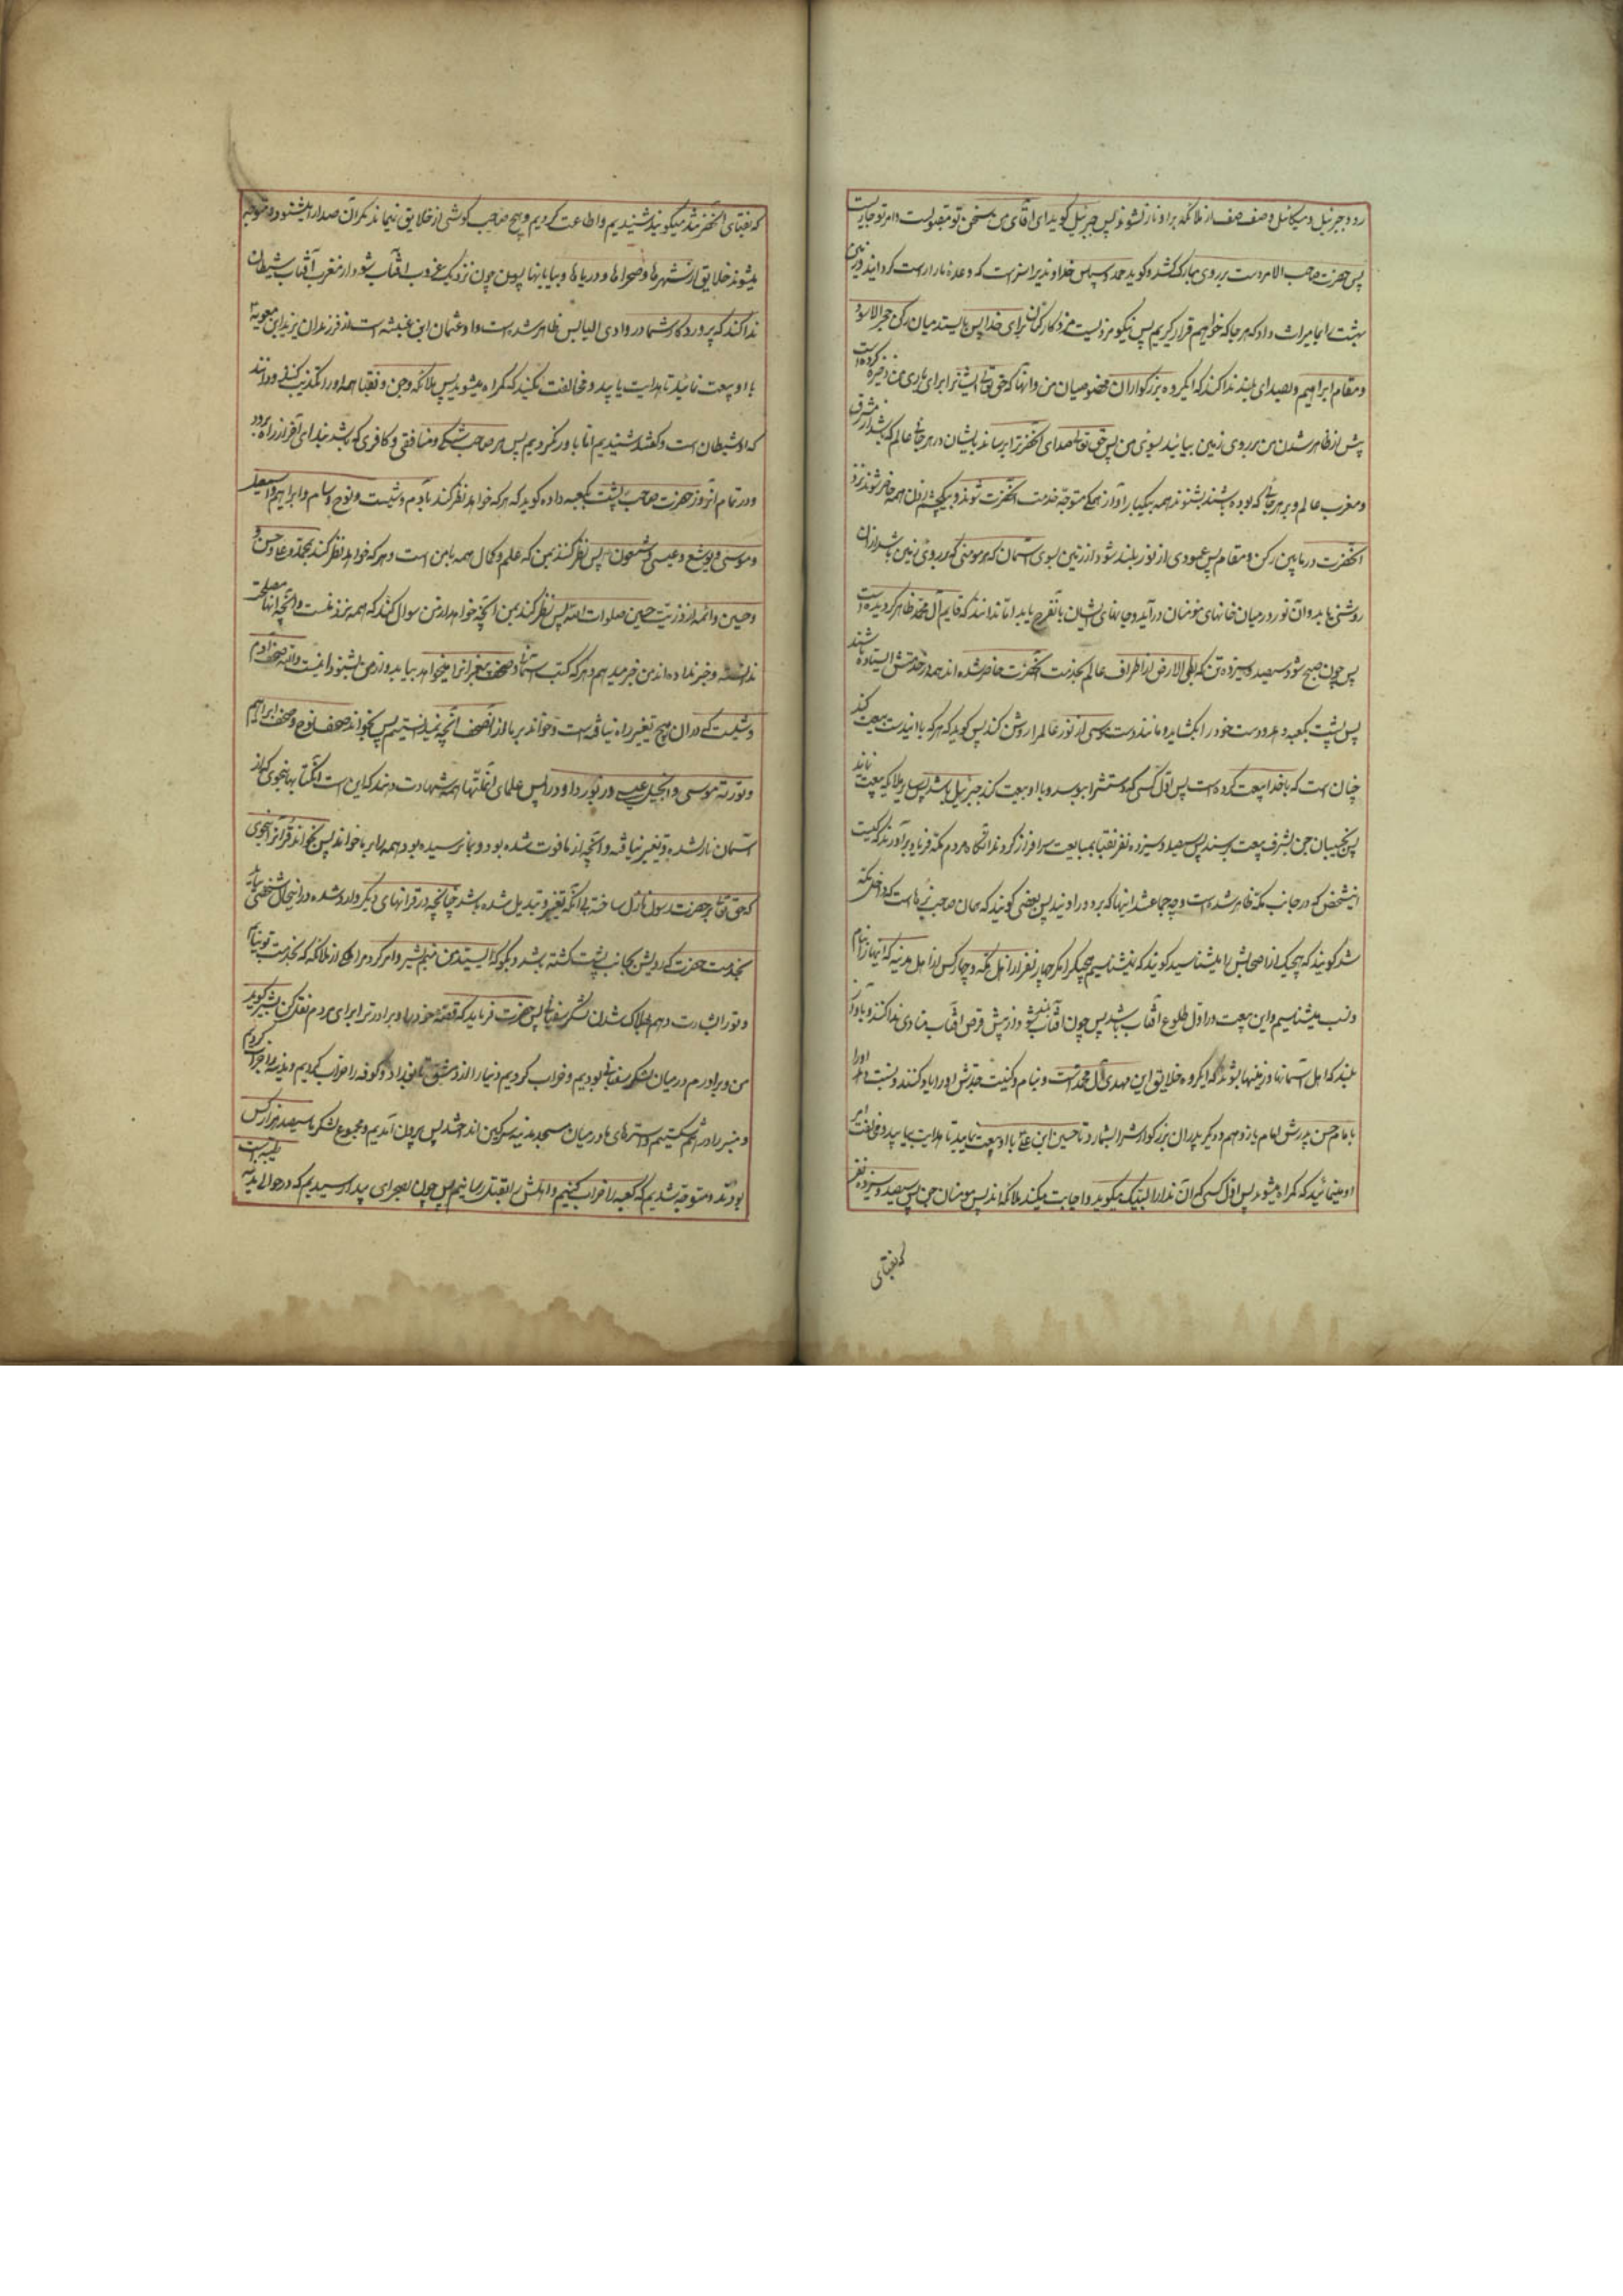 رود و جبرئیل و میکائیل و صف صف از ملائکه بر او نازل شوند پس جبرئیل گوید ای آقای من سخن تو مقبولست و امر تو جاریست
پس حضرت صاحب الامر دست بر روی مبارک کشد و گوید حمد و سپاس خداوندیرا سزاست که وعده ما را راست گردانید و زمین
بهشت را بما میراث داد که هر جا که خواهیم قرار گیریم پس نیکو مزدیست مزد کارکنان برای خدا پس بایستد میان رکن حجر الاسود
و مقام ابراهیم و بصدای بلند ندا کند که ای گروه بزرگواران و مخصوصان من و آنها که حق تعالی ایشانرا برای یاری من ذخیره کرده است
پیش از ظاهر شدن من بر روی زمین بیائید بسوی من پس حق تعالی صدای آنحضرترا برساند بایشان در هر جای عالم که باشند از مشرق
و مغرب عالم و بر هر جائی که بوده باشند بشنوند همه بیکبار آواز همگی متوجه خدمت آنحضرت شوند و بیکچشم زدن همه حاضر شوند نزد
آنحضرت در مابین رکن و مقام پس عمودی از نور بلند شود از زمین بسوی آسمان که هر مومنی که بر روی زمین باشد از آن
روشنی یابد و آن نور در میان خانهای مومنان درآید و جانهای ایشان بآن فرح یابد اما ندانند که قایم آل محمد ظاهر گردیده است
پس چون صبح شود سیصد و سیزده تن که بطی الارض از اطراف عالم بخدمت آنحضرت حاضر شده اند همه در خدمتش ایستاده باشند
پس پشت بکعبه دهد و دست خود را بگشاید و مانند دست موسی از نور عالمرا روشن کند پس گوید که هر که با این دست بیعت کند
چنان است که با خدا بیعت کرده است پس اول کسی که دستش را ببوسد و با او بیعت کند جبرئیل باشد پس سایر ملائکه بیعت نمایند
پس نجیبان جن بشرف بیعت برسند پس سیصد و سیزده نفر نقبا بمبایعت سرافراز گردند آنگاه مردم مکه فریاد برآورند که کیست
اینشخص که در جانب مکه ظاهر شده است و چه جماعتند اینها که بر دور اویند پس بعضی گویند که همان صاحب بزهاست که داخل مکه
شد گویند که هیچیک از اصحابش را میشناسید گویند که نمیشناسیم هیچیک را مگر چهار نفر را از اهل مکه و چهار کس از اهل مدینه که اینها را بنام
و نسب میشناسیم و این بیعت در اول طلوع آفتاب باشد پس چون آفتاب بلند شود از پیش قرص آفتاب منادی ندا کند و بآواز
بلند که اهل آسمانها و زمینها بشنوند که ای گروه خلایق این مهدی آل محمد است و بنام و کنیت جدش او را یاد کنند و نسبت دهد او را
بامام حسن پدرش امام یازدهم و دیگر پدران بزرگوارش را بشمارد تا حسین ابن علی با او بیعت نمایید تا هدایت بیابید و مخالفت امر
او منمائید که گمراه میشوید پس اول کسی که آن ندا را لبیک میگوید و اجابت میکند ملائکه اند پس مومنان جن پس سیصد و سیزده نفر
که نقبای
که نقبای آنحضرتند میگویند شنیدیم و اطاعت کردیم و هیچ صاحب گوشی از خلایق نیماند مگر آن صدا را میشنود و متوجه
میشوند خلایق از شهرها و صحراها و دریاها و بیابانها پس چون نزدیک غروب آفتاب شود از مغرب آفتاب شیطان
ندا کند که پروردگار شما در وادی الیابس ظاهر شده است و او عثمان ابن عنبسه است از فرزندان یزید ابن معویه
با او بیعت نمائید تا هدایت یابید و مخالفت مکنید که گمراه میشوید پس ملائکه و جن و نقبا همه او را تکذیب کنند و دانند
که او شیطان است و گفتند شنیدیم اما باور نکردیم پس هر صاحب شکی و منافقی و کافری که باشد بندای آخر از راه برود
و در تمام آنروز حضرت صاحب پشت بکعبه داده گوید که هر که خواهد نظر کند بآدم و شیث و نوح و سام و ابراهیم و اسمعیل
و موسی و یوشع و عیسی و شمعون پس نظر کند بمن که علم و کمال همه با من است و هر که خواهد نظر کند بمحمد و علی و حسن
و حسین و ائمه از ذریت حسین صلوات الله پس نظر کند بمن و آنچه خواهد از من سوال کند که همه نزد منست و آنچه آنها مصلحت
ندانسته و خبر نداده اند من خبر میدهم و هر که کتب آسمانی و صحف پیغمبرانرا میخواهد بیاید و از من بشنود ... صحف آدم
و شیث که در آن هیچ تغییر راه نیافته است و خواند بر ما از آن صحف آنچه نمیدانستیم پس بخواند صحف نوح و صحف ابراهیم
و توریه موسی و انجیل عیسی و زبور داود را پس علمای آن ملتها همه شهادت دهند که این است آن کتابها بنحوی که از
آسمان نازلشده و تغییر نیافته و آنچه از ما فوت شده بود و بما نرسیده بود همه را بر ما خواند پس بخواند قرآنرا بنحوی
که حق تعالی بر حضرت رسول نازل ساخته بی آنکه تغییر و تبدیل شده باشد چنانچه در قرآنهای دیگر وارد شده در اینحال شخصی بیاید
بخدمت حضرت که رویش بجانب پشت گشته باشد و بگوید که ای سید من منم بشیر و امر کرد مرا ملکی از ملائکه که بخدمت تو بیایم
و تو را بشارت دهم بهلاک شدن لشکر سفیانی پس حضرت فرماید که قصه خود را و برادرترا برای مردم نقل کن بشیر گوید
من و برادرم در میان لشکر سفیانی بودیم و خراب کردیم دنیا را از دمشق تا بغداد و کوفه را خراب کردیم و مدینه را خراب کردیم
و منبر را درهم شکستیم و استرهای ما در میان مسجد مدینه سرگین انداختند پس بیرون آمدیم و مجموع لشکر ما سیصد هزار کس
بودند و متوجه شدیم که کعبه را خراب کنیم و اهلش را بقتل رسانیم پس چون بصحرای بیدا رسیدیم که در حوالی مدینه طیبه است